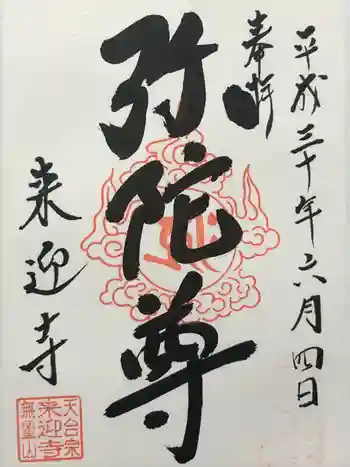 平成三十年六月四日
奉拝
弥陀尊
来迎寺
天台宗
来迎寺
無量山